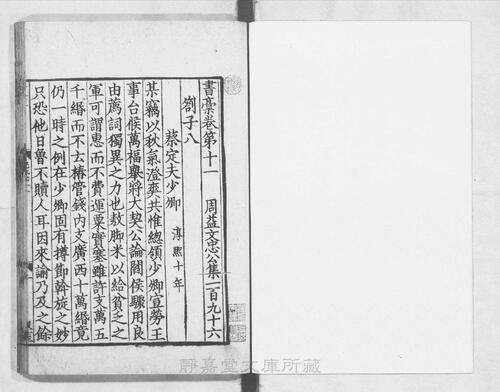 書藁卷第十一　周益文忠公集一百九十六
劄子八
蔡定夫少卿　淳熙十年
某竊以秋氣澄爽共惟總領少卿宣勞王
事台候萬福舉將大契公論閻侯驟用良
由薦詞獨異之力也敖腳米以給貧乏之
軍可謂惠而不費運粟實塞雖許支萬五
千緡而不去樁管錢內支廣西十萬緡竟
仍一時之例在少卿固有摶節斡旋之妙
只恐他日魯不贖人耳因來諭乃及之餘
靜嘉堂文庫所藏